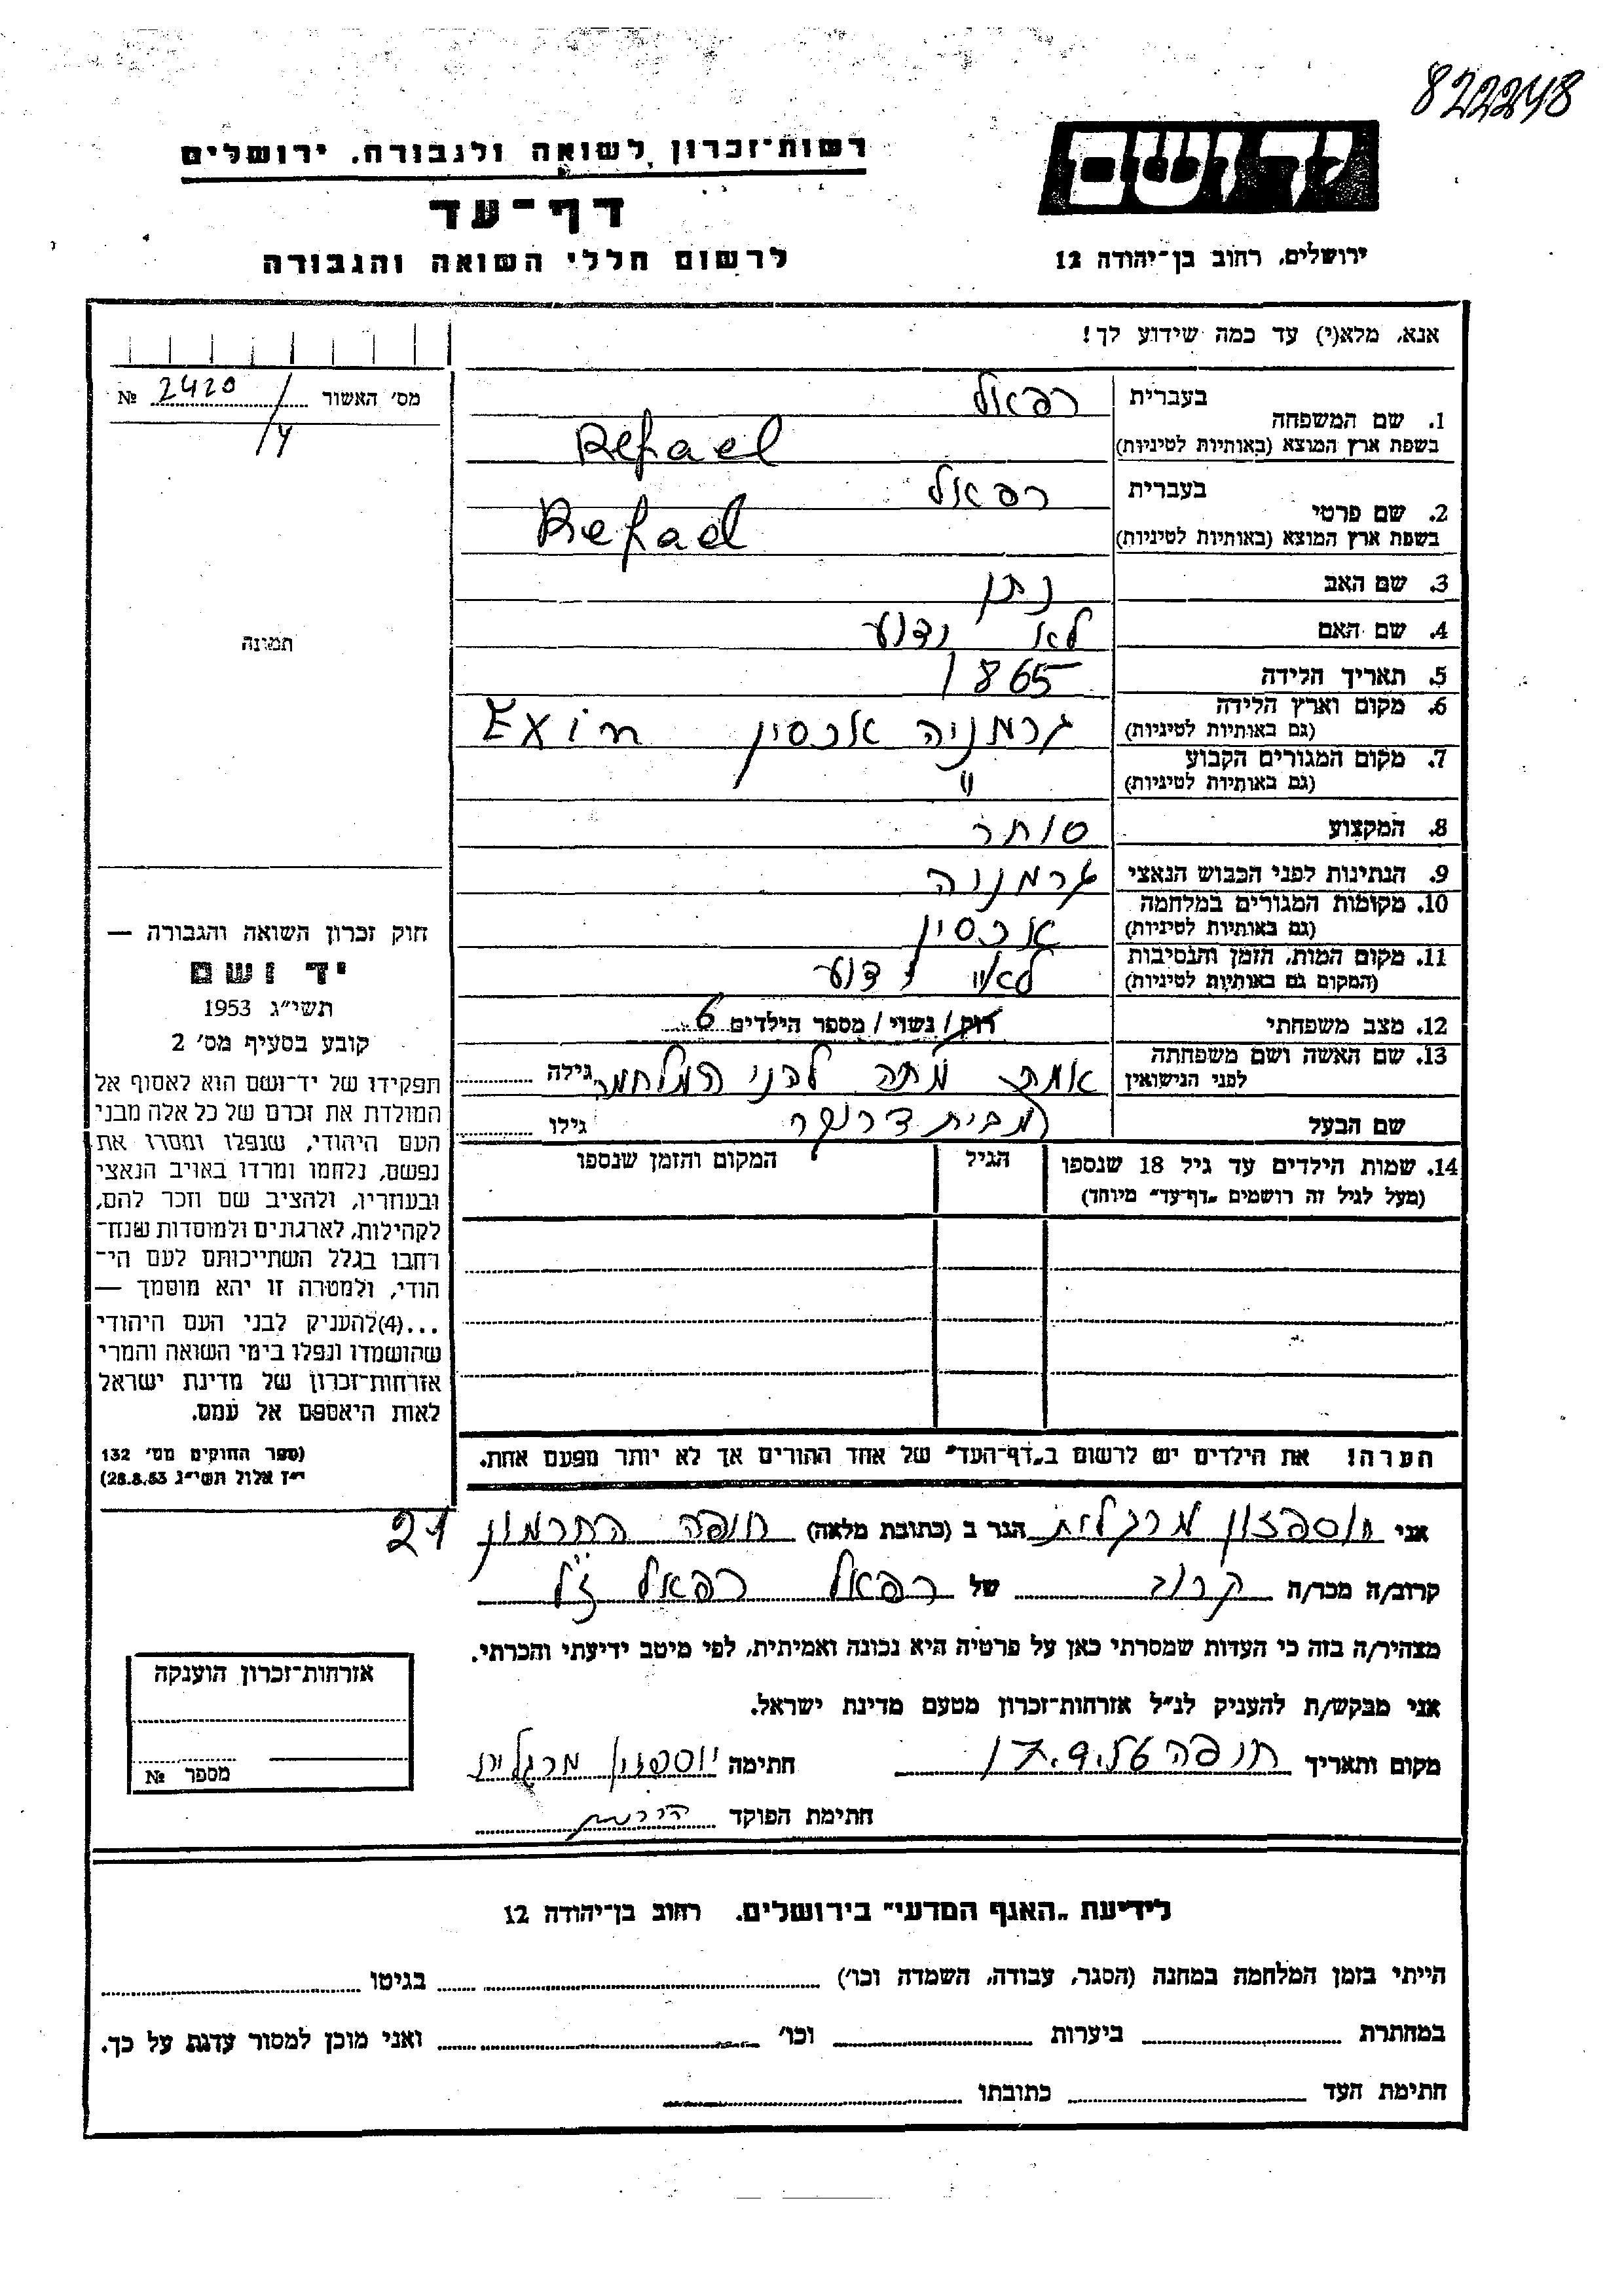 822248
יד ושם
רשות־זכרון לשואה ולגבורה, ירושלים
דף־עד
לרשום חללי השואה והגבורה
ירושלים, רחוב בן־יהודה 12
אנא, מלא(י) עד כמה שידוע לך!
מס׳ האשור 2420/4 №
1. שם המשפחה
בעברית רפאל
בשפת ארץ המוצא (באותיות לטיניות) Refael
2. שם פרטי
בעברית רפאל
בשפת ארץ המוצא (באותיות לטיניות) Refael
3. שם האב נתן
4. שם האם לא ידוע
5. תאריך הלידה 1865
6. מקום וארץ הלידה
(גם באותיות לטיניות) גרמניה אכסין Exin
7. מקום המגורים הקבוע
(גם באותיות לטיניות) "
8. המקצוע סוחר
9. הנתינות לפני הכבוש הנאצי גרמניה
10. מקומות המגורים במלחמה
(גם באותיות לטיניות) אכסין
11. מקום המות, הזמן והנסיבות
(המקום גם באותיות לטיניות) לא ידוע
12. מצב משפחתי רוק / נשוי / מספר הילדים 6
13. שם האשה ושם משפחתה
לפני הנישואין מתה לפני המלחמה גילה
שם הבעל מבית גילו
14. שמות הילדים עד גיל 18 שנספו
(מעל לגיל זה רושמים „דף־עד״ מיוחד)
הגיל
המקום והזמן שנספו
תמונה
חוק זכרון השואה והגבורה —
יד ושם
תשי״ג 1953
קובע בסעיף מס׳ 2
תפקידו של יד־ושם הוא לאסוף אל
המולדת את זכרם של כל אלה מבני
העם היהודי, שנפלו ומסרו את
נפשם, נלחמו ומרדו באויב הנאצי
ובעוזריו, ולהציב שם וזכר להם,
לקהילות, לארגונים ולמוסדות שנח־
רחבו בגלל השתייכותם לעם הי־
הודי, ולמטרה זו יהא מוסמך —
...(4)להעניק לבני העם היהודי
שהושמדו ונפלו בימי השואה והמרי
אזרחות־זכרון של מדינת ישראל
לאות היאספם אל עמם.
(ספר החוקים מס׳ 132
י״ז אלול תשי״ג 28.8.53)
הערה! את הילדים יש לרשום ב„דף־העד״ של אחד ההורים אך לא יותר מפעם אחת.
אני יוספזון מרגלית הגר ב (כתובת מלאה) חיפה החרמון 21
קרוב/ה מכר/ה קרוב של רפאל רפאל ז״ל
מצהיר/ה בזה כי העדות שמסרתי כאן על פרטיה היא נכונה ואמיתית, לפי מיטב ידיעתי והכרתי.
אני מבקש/ת להעניק לנ״ל אזרחות־זכרון מטעם מדינת ישראל.
מקום ותאריך חיפה 17.9.56 חתימה יוספזון מרגלית
חתימת הפוקד
אזרחות־זכרון הוענקה
מספר №
לידיעת „האגף המדעי״ בירושלים. רחוב בן־יהודה 12
הייתי בזמן המלחמה במחנה (הסגר, עבודה, השמדה וכו׳) בגיטו
במחתרת ביערות וכו׳ ואני מוכן למסור עדות על כך.
חתימת העד כתובתו